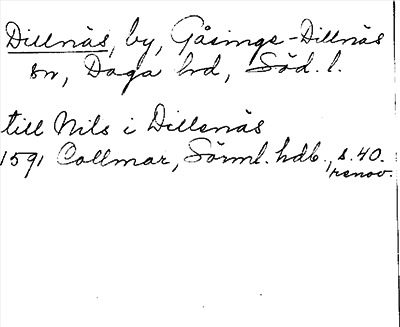 Dillnäs, by, Gåsinge-Dillnäs
sn, Daga hd, Söd. l.
till Nils i Dillenäs
1591 Collmar, Sörml. hdb., s. 40.
renov.